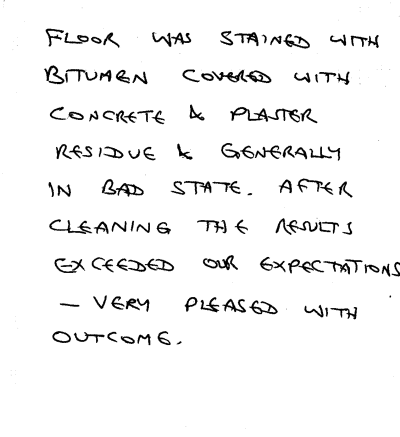 FLOOR WAS STAINED WITH
BITUMEN COVERED WITH
CONCRETE & PLASTER
RESIDUE & GENERALLY
IN BAD STATE. AFTER
CLEANING THE RESULTS
EXCEEDED OUR EXPECTATIONS
— VERY PLEASED WITH
OUTCOME.